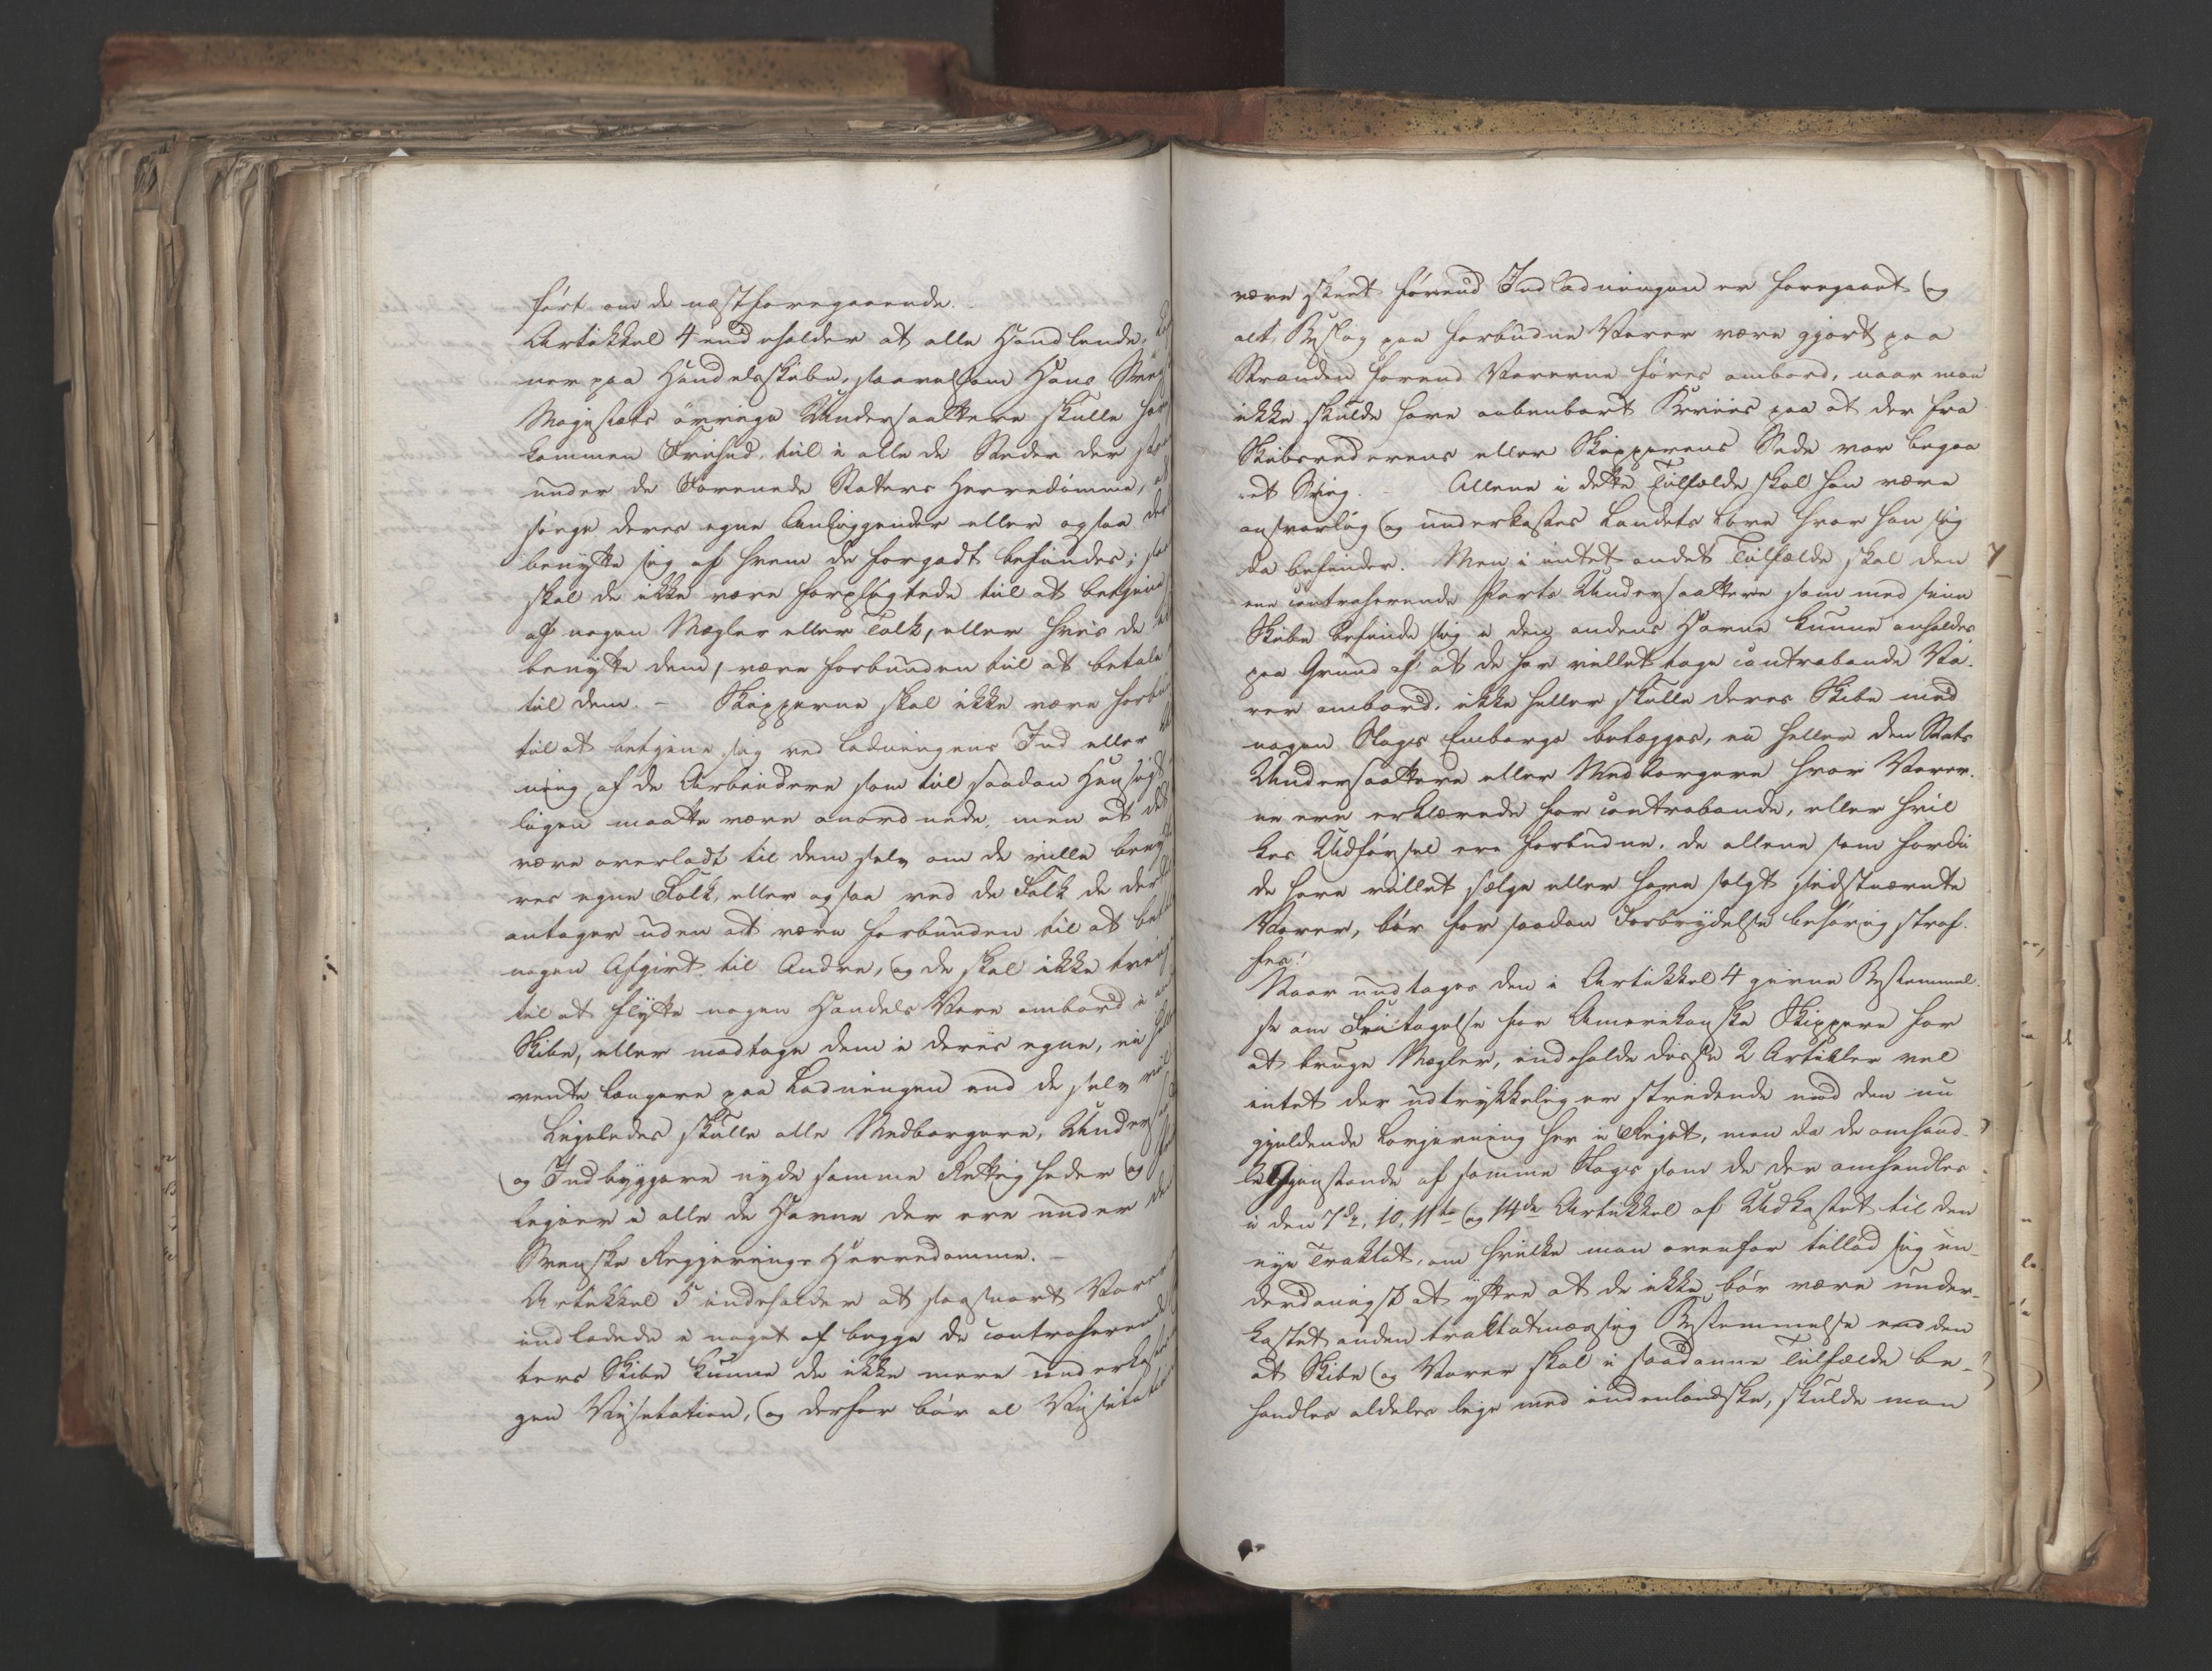 ført om de næstforegaaende.
Artikkel 4 indeholder at alle Handlende,
ner paa Handelsskibe, saavelsom Hans
Majestæts øvrige Undersaattere skulle
kommen Friehed, til i alle de Stæder der
under de Forenede Staters Herredömme,
sörge deres egne Anliggender eller ogsaa
benytte sig af hvem de forgodt befindes;
skal de ikke være forpligtede til at betjene
af nogen Mægler eller Tolk, eller hvis de
benytte dem, være forbunden til at betale
til dem. – Skipperne skal ikke være
til at betjene sig ved Ladningens Ind eller
ning af de Arbeidere som til saadan Hensigt
ligen maatte være anordnede, men at det
være overladt til dem selv om de ville
res egne Folk, eller ogsaa ved de Folk de
antager uden at være forbunden til at
nogen Afgivt til Andre, og de skal ikke
til at flytte nogen Handels Vare ombord i
Skibe, eller modtage dem i deres egne, ei
vente længere paa Ladningen end de selv
Ligeledes skulle alle Medborgere,
og Indbyggere nyde samme Rettigheder og
legier i alle de Havne der ere under
Svenske Regjerings Herredømme. –
Artikkel 5 indeholder at saasnart Varer
indladede i noget af begge de contraherende
ters Skibe kunne de ikke mere underkastes
gen Visitation, og derfor bör al
være skeet förend Indladningen er foregaaet og
alt Beslag paa forbudne Varer være gjort paa
Stranden forend Varerne föres ombord, naar man
ikke skulde have aabenbart Beviis paa at der fra
Skibsrederens eller Skipperens Side var begaa
et Svig. – Allene i dette Tilfælde skal han være
ansvarlig og underkastes Landets Love hvor han sig
da befinder. Men i intet andet Tilfælde skal den
ene contraherende Parts Undersaattere som med sine
Skibe befinde sig i den andens Havne kunne anholdes
paa Grund af at de har villet tage contrabande Va-
rer ombord, ikke heller skulle deres Skibe med
nogen Slags Embargo belægges, ei heller den Stats
Undersaattere eller Medborgere hvor Varer-
ne ere erklærede for contrabande, eller hvil
kes Udförsel ere forbudne. de allene som fordi
de have villet sælge eller have solgt sidstnævnte
Varer, bör for saadan Forbrydelse behörig straf-
fes!
Naar undtages den i Artikkel 4 givne Bestemmel-
se om Fritagelse for Amerikanske Skippere for
at bruge Mægler, indeholde disse 2 Artikler vel
intet der udtrykkelig er stridende mod den nu
gjældende Lovgivning her i Riget, men da de omhand-
le Gjenstande af samme Slags som de der omhandles
i den 7de, 10, 11te og 14de Artikkel af Udkastet til den
nye Traktat, om hvilke man ovenfor tillod sig un-
derdanigst at yttre at de ikke bör være under-
kastet anden traktatmæssig Bestemmelse end den
at Skibe og Varer skal i saadanne Tilfælde be-
handles aldeles lige med indenlandske, skulde man